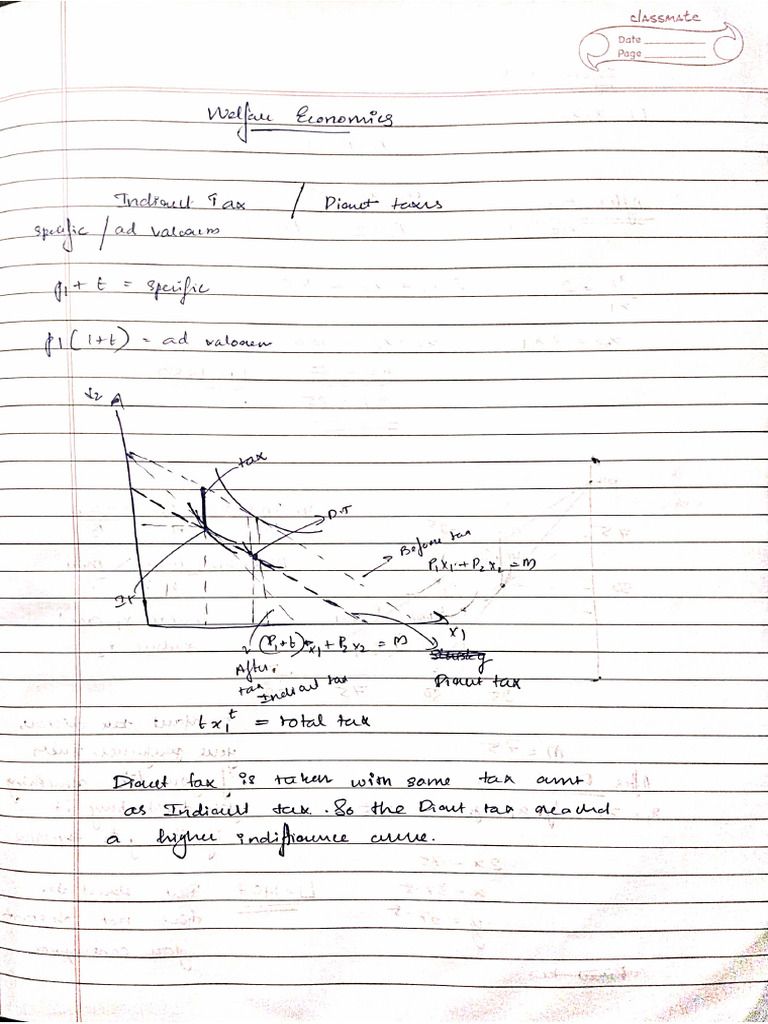 classmate
Date
Page
Welfare Economics
Indirect Tax / Direct taxes
specific / ad valorem
p1 + t = specific
p1(1+t) = ad valorem
x2
tax
D.T
Before tax
P1x1 + P2x2 = M
IT
x1
(P1+t)x1 + P2x2 = M
After
tax Indirect tax
Direct tax
t x1^t = total tax
Direct tax is taken with same tax amt
as Indirect tax. So the Direct tax reached
a higher indifference curve.